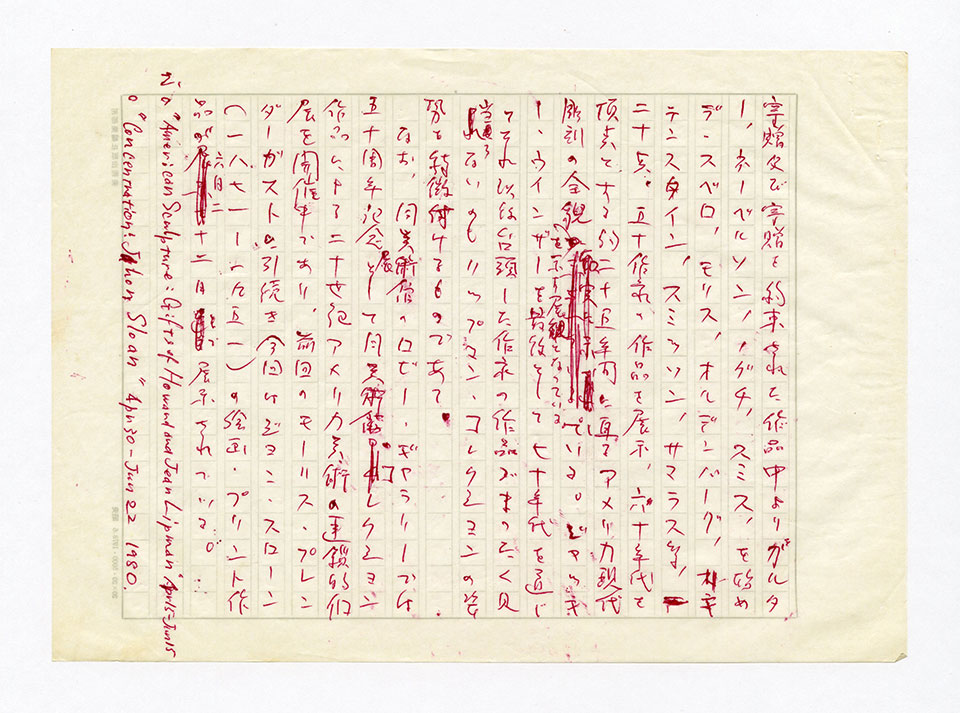 寄贈及び寄贈を約束された作品中よりガルタ
ー、ネーベルソン、ノグチ、スミス、を始め
デ・スベロ、モリス、オルデンバーグ、
テンスタイン、スミッソン、サマラス等、
二十点。五十作家の作品を展示、六十年代を
頂点とする約二十五年間に亘るアメリカ現代
彫刻の全貌を示す展観となっている。
ー・ウインザーを最後として七十年代を通じ
てそれ以後台頭した作家の作品がまったく見
当らないのもリップマン・コレクションの姿
勢を特徴付けるものであて
なお、同美術館のロビー・ギャラリーでは
五十周年記念展として同美術館コレクション
作品による二十世紀アメリカ美術の連鎖的個
展を開催中であり、前回のモーリス・プレン
ダーガストに引続き今回はジョン・スローン
(一八七一ー一九五一)の絵画・プリント作
品が六月二十二日まで展示されている。
2. o "American Sculpture: Gifts of Howard and Jean Lipman" Apr15-Jun15
o "Concentration: John Sloan" Apr30-Jun22 1980.